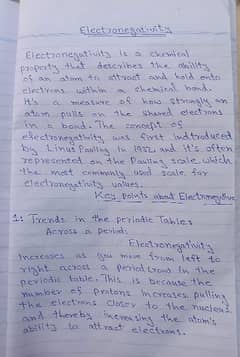 Electronegativity
Electronegativity is a chemical
property that describes the ability
of an atom to attract and hold onto
electrons within a chemical bond.
It's a measure of how strongly an
atom pulls on the shared electrons
in a bond. The concept of
electronegativity was first indtroduced
by Linus Pauling in 1932 and it's often
represented on the Pauling scale, which
the most commonly used scale for
electronegativity values.
Key points about Electronegative
1: Trends in the periodic Tables
Across a period:
Electronegativity
Increases as you move from left to
right across a period (row) in the
periodic table. This is because the
number of protons increases, pulling
the electrons closer to the nucleus
and thereby increasing the atom's
ability to attract electrons.